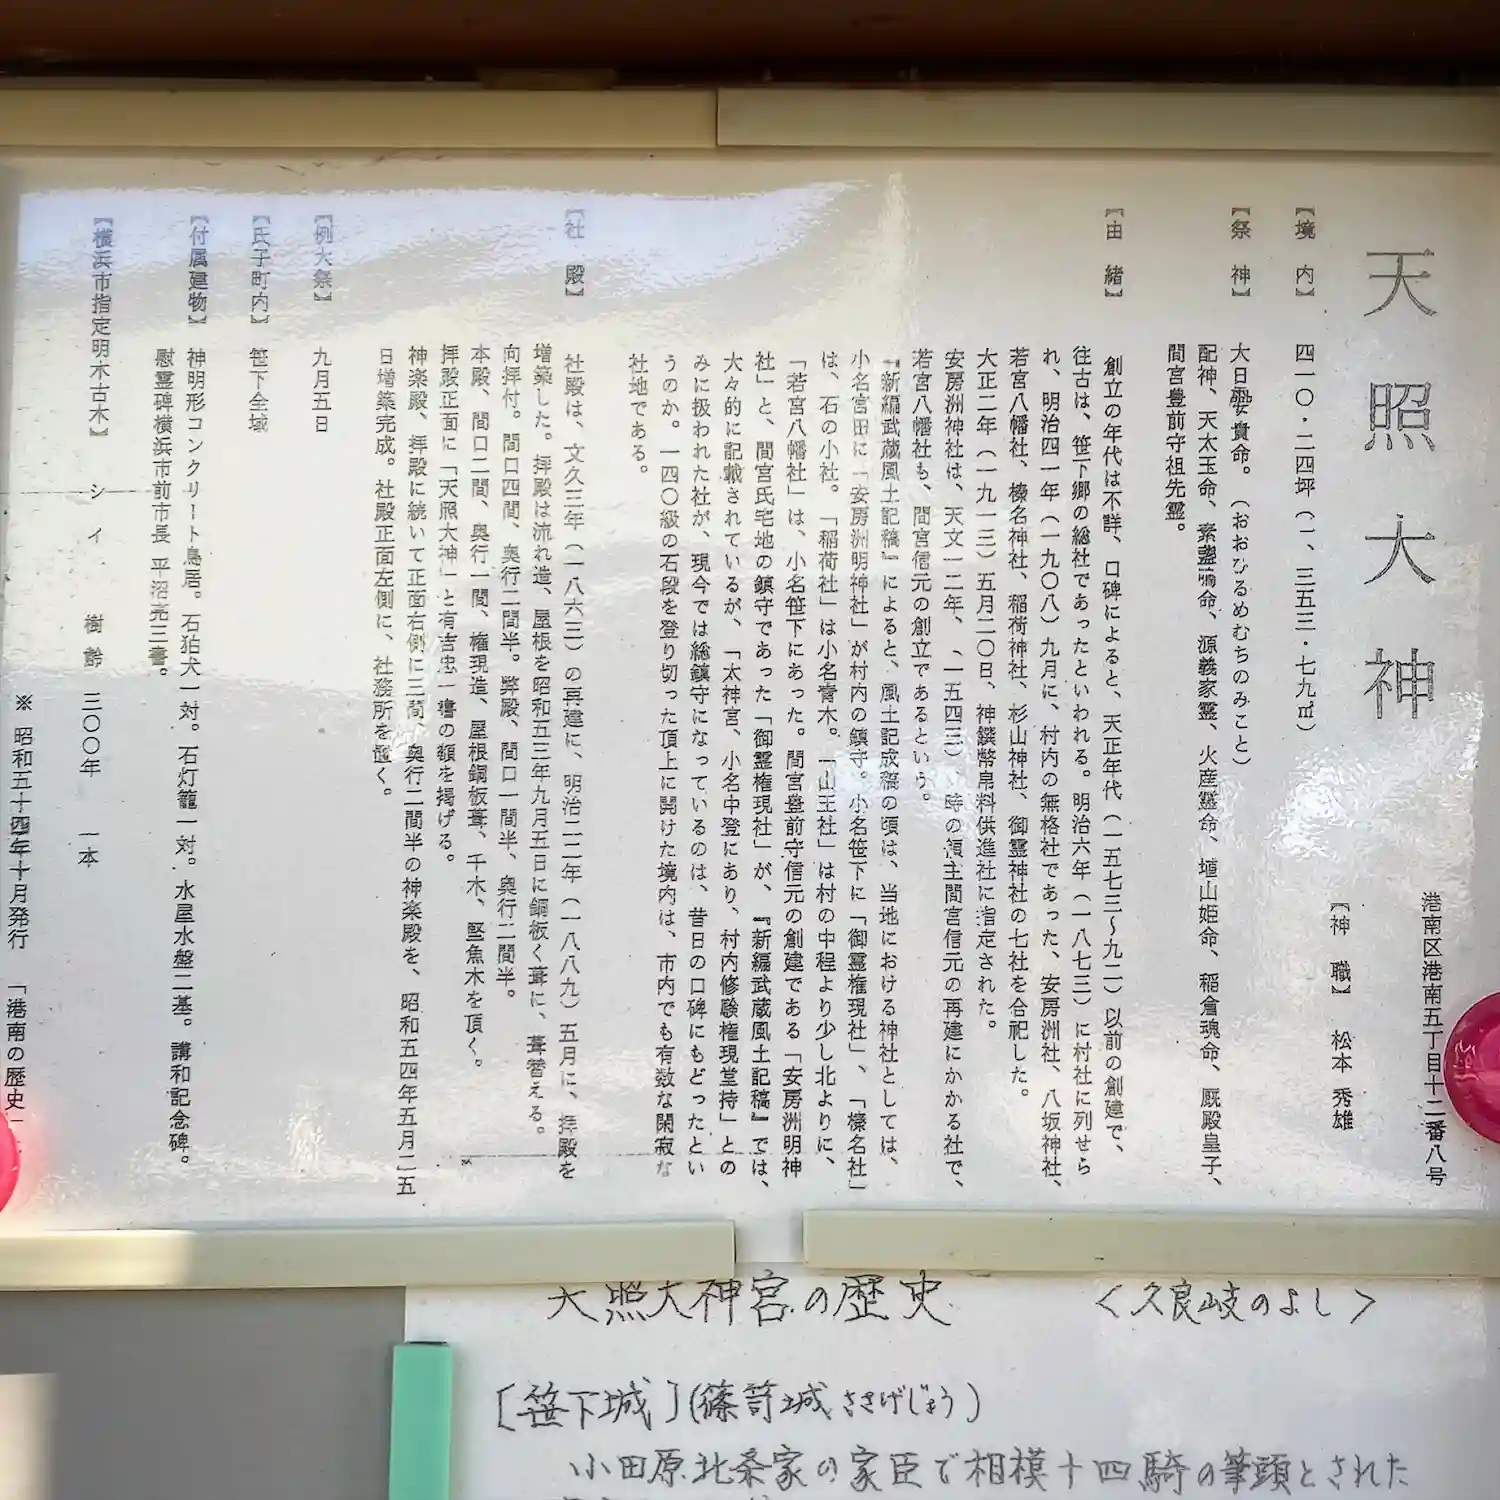 天照大神
港南区港南五丁目十二番八号
【神職】 松本 秀雄
【境内】 四一〇・二四坪（一、三五三・七九㎡）
【祭神】 大日孁貴命。（おおひるめむちのみこと）
配神、天太玉命、素盞嗚命、源義家霊、火産霊命、埴山姫命、稲倉魂命、厩殿皇子、
間宮豊前守祖先霊。
【由緒】 創立の年代は不詳、口碑によると、天正年代（一五七三〜九二）以前の創建で、
往古は、笹下郷の総社であったといわれる。明治六年（一八七三）に村社に列せら
れ、明治四一年（一九〇八）九月に、村内の無格社であった、安房洲社、八坂神社、
若宮八幡社、榛名神社、稲荷神社、杉山神社、御霊神社の七社を合祀した。
大正二年（一九一三）五月二〇日、神饌幣帛料供進社に指定された。
安房洲神社は、天文一二年、（一五四三）、時の領主間宮信元の再建にかかる社で、
若宮八幡社も、間宮信元の創立であるという。
『新編武蔵風土記稿』によると、風土記成稿の頃は、当地における神社としては、
小名宮田に「安房洲明神社」が村内の鎮守。小名笹下に「御霊権現社」、「榛名社」
は、石の小社。「稲荷社」は小名青木。「山王社」は村の中程より少し北よりに、
「若宮八幡社」は、小名笹下にあった。間宮豊前守信元の創建である「安房洲明神
社」と、間宮氏宅地の鎮守であった「御霊権現社」が、『新編武蔵風土記稿』では、
大々的に記載されているが、「太神宮、小名中登にあり、村内修験権現堂持」との
みに扱われた社が、現今では総鎮守になっているのは、昔日の口碑にもどったとい
うのか。一四〇級の石段を登り切った頂上に開けた境内は、市内でも有数な閑寂な
社地である。
【社殿】 社殿は、文久三年（一八六三）の再建に、明治二二年（一八八九）五月に、拝殿を
増築した。拝殿は流れ造、屋根を昭和五三年九月五日に銅板く葺に、葺替える。
向拝付。間口四間、奥行二間半。弊殿、間口一間半、奥行二間半。
本殿、間口二間、奥行一間、権現造、屋根銅板葺、千木、堅魚木を頂く。
拝殿正面に「天照大神」と有吉忠一書の額を掲げる。
神楽殿、拝殿に続いて正面右側に三間、奥行二間半の神楽殿を、昭和五四年五月二五
日増築完成。社殿正面左側に、社務所を置く。
【例大祭】 九月五日
【氏子町内】 笹下全域
【付属建物】 神明形コンクリート鳥居。石狛犬一対。石灯籠一対。水屋水盤二基。講和記念碑。
慰霊碑横浜市前市長 平沼亮三書。
【横浜市指定明木古木】 シイ 樹齢 三〇〇年 一本
※ 昭和五十四年十月発行 「港南の歴史」
天照大神宮の歴史 ＜久良岐のよし＞
[笹下城](篠笥城ささげじょう)
小田原北条家の家臣で相模十四騎の筆頭とされた